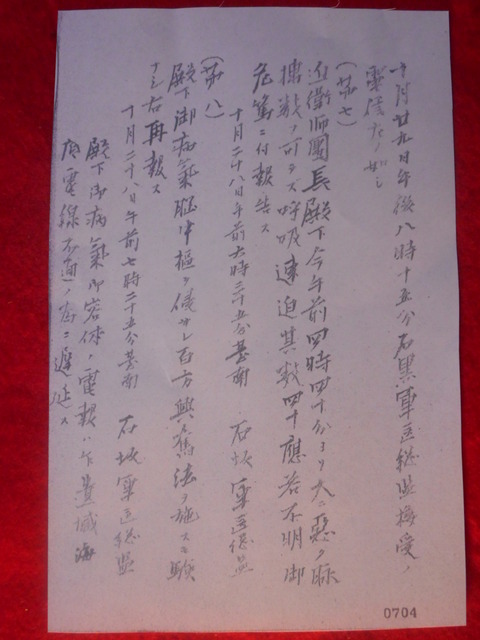 十月廿九日午後八時十五分石黒軍医総監接受ノ
電信左ノ如シ
(第七)
近衛師團長殿下今午前四時四十分ヨリ大ニ悪ク脈
搏数フ可ラス呼吸速迫其数四十應答不明御
危篤ニ付報告ス
十月二十八日午前六時三十五分臺南 石坂軍医総監
(第八)
殿下御病氣脳中樞ヲ侵サレ百方興奮法ヲ施スモ験
ナシ右再報ス
十月二十八日午前七時二十五分臺南 石坂軍医総監
殿下御病氣御容体ノ電報ハ台豊城海
底電線不通ノ為ニ遅延ス
0704